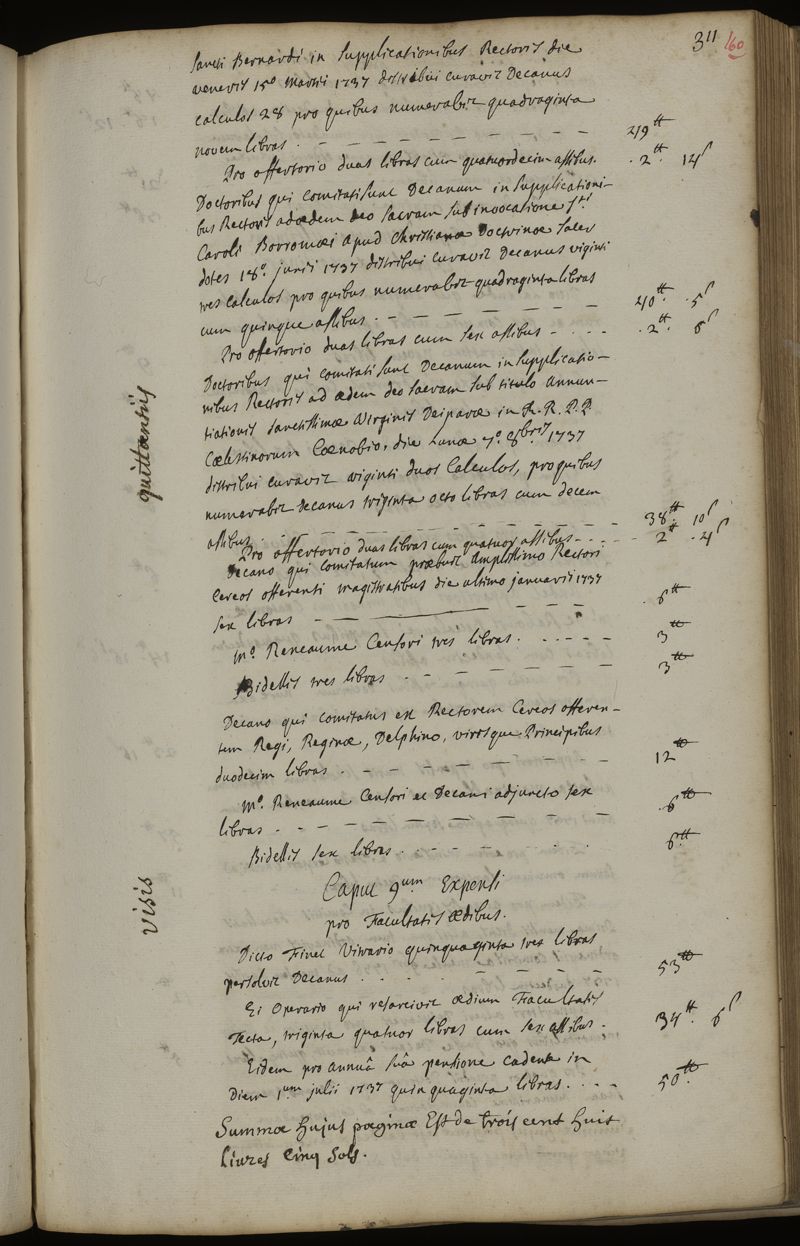 311 160
Sancti Bernardi in Supplicationibus Rectoris die
veneris 15º martii 1737 distribui curavit Decanus
calculos 28 pro quibus numerabit quadraginta
novem libras . — — — — — — — 49tt
Pro offertorio duas libras cum quatuordecim assibus. 2tt. 14s
Doctoribus qui comitati sunt Decanum in Supplicationi-
bus Rectoris ad ædem deo sacram sub invocatione sti
Caroli Borromæi apud Christianæ Doctrinæ Sacer
dotes 18º. junii 1737 distribui curavit Decanus viginti
tres calculos pro quibus numerabit quadraginta libras
cum quinque assibus . — — — — — — 40tt. 5s
Pro offertorio duas libras cum sex assibus - . . . 2tt. 6s
Doctoribus qui comitati sunt Decanum in Supplicatio-
nibus Rectoris ad ædem deo sacram sub titulo Annun-
tiationis Sanctissimæ Virginis Deiparæ in R. R. P. P.
Cælestinorum Cœnobio, die Lunæ 7º. 8bris 1737
distribui curavit viginti duos Calculos, pro quibus
numerabit Decanus triginta octo libras cum decem
assibus. — — — — — — — 38tt. 10s
Pro offertorio duas libras cum quatuor assibus - - . 2tt. 4s
Decano qui comitatum præbuit Amplissimo Rectori
Cereos offerenti magistratibus die ultimo januarii 1737
sex libras — — — — — 6tt
Mº. Reneaume Censori tres libras . - - - - - 3tt
Bidellis tres libras . — — — — — 3tt
quittantiis
Decano qui comitatus est Rectorem Cereos offeren-
tem Regi, Reginæ, Delphino, virisque Principibus
duodecim libras . — — — — — — — 12tt
Mº. Reneaume Censori et Decani adjuncto sex
libras . — — — — — — — — 6tt
Bidellis sex libras . — — — . . 6tt
Visis
Caput 9um Expensi
pro Facultatis ædibus.
Dicto Finet Vitrario quinquaginta tres libras
persolvit Decanus . . . . — — — — 53tt
Ei Operario qui resarcivit ædium Facultatis
Tecta, triginta quatuor libras cum sex assibus . 34tt. 6s
Eidem pro annuâ suâ pensione cadente in
Diem 1um julii 1737 quinquaginta libras . . - - 50tt.
Summa hujus paginæ Est de trois cent huit
Livres Cinq Sols.